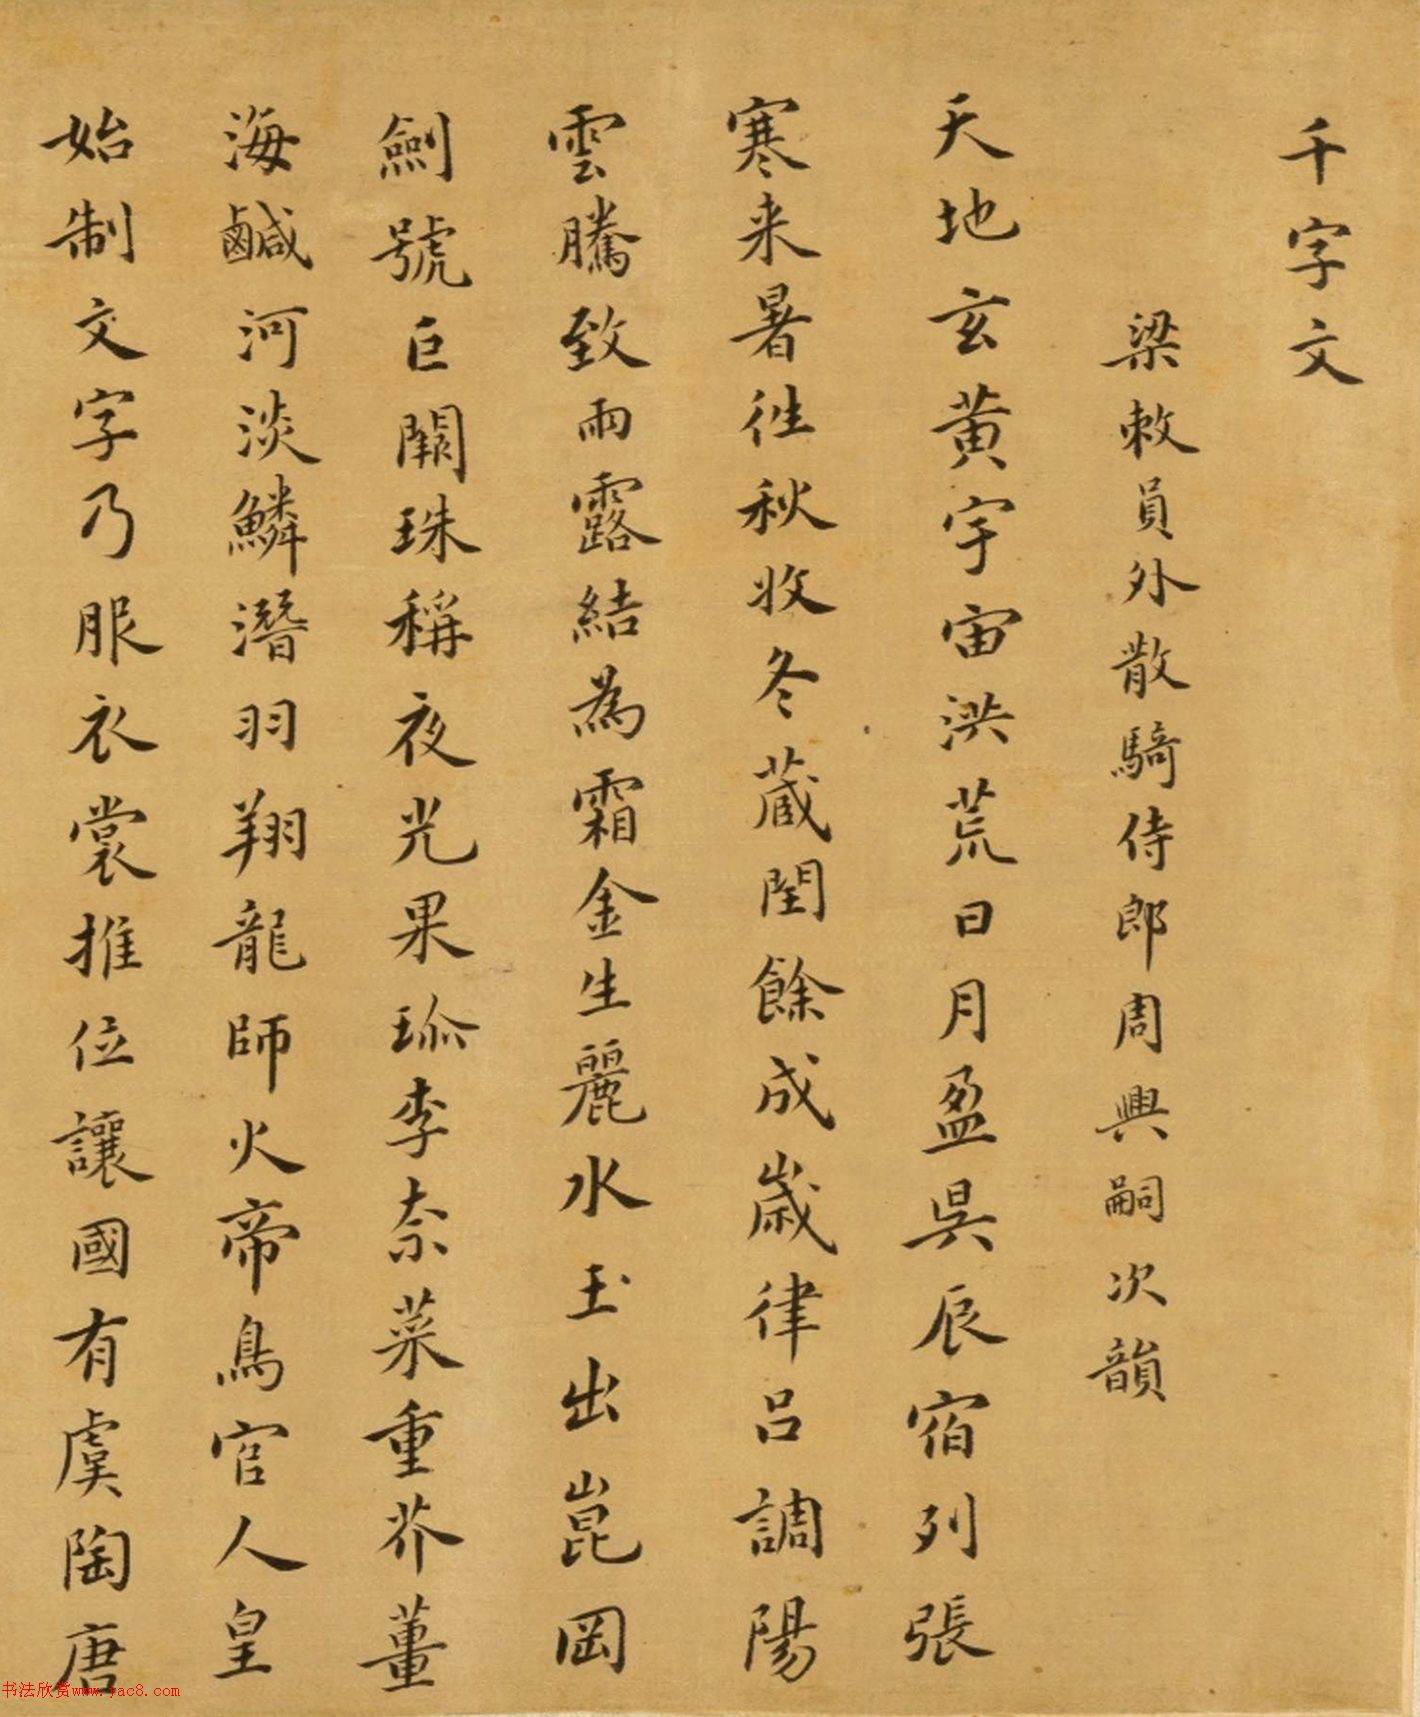 千字文
梁敕員外散騎侍郎周興嗣次韻
天地玄黃宇宙洪荒日月盈昃辰宿列張
寒来暑往秋收冬蔵閏餘成歲律呂調陽
雲騰致雨露結為霜金生麗水玉出崑岡
劍號巨闕珠稱夜光果珎李柰菜重芥薑
海鹹河淡鱗潛羽翔龍師火帝鳥官人皇
始制文字乃服衣裳推位讓國有虞陶唐
书法欣赏www.yac8.com